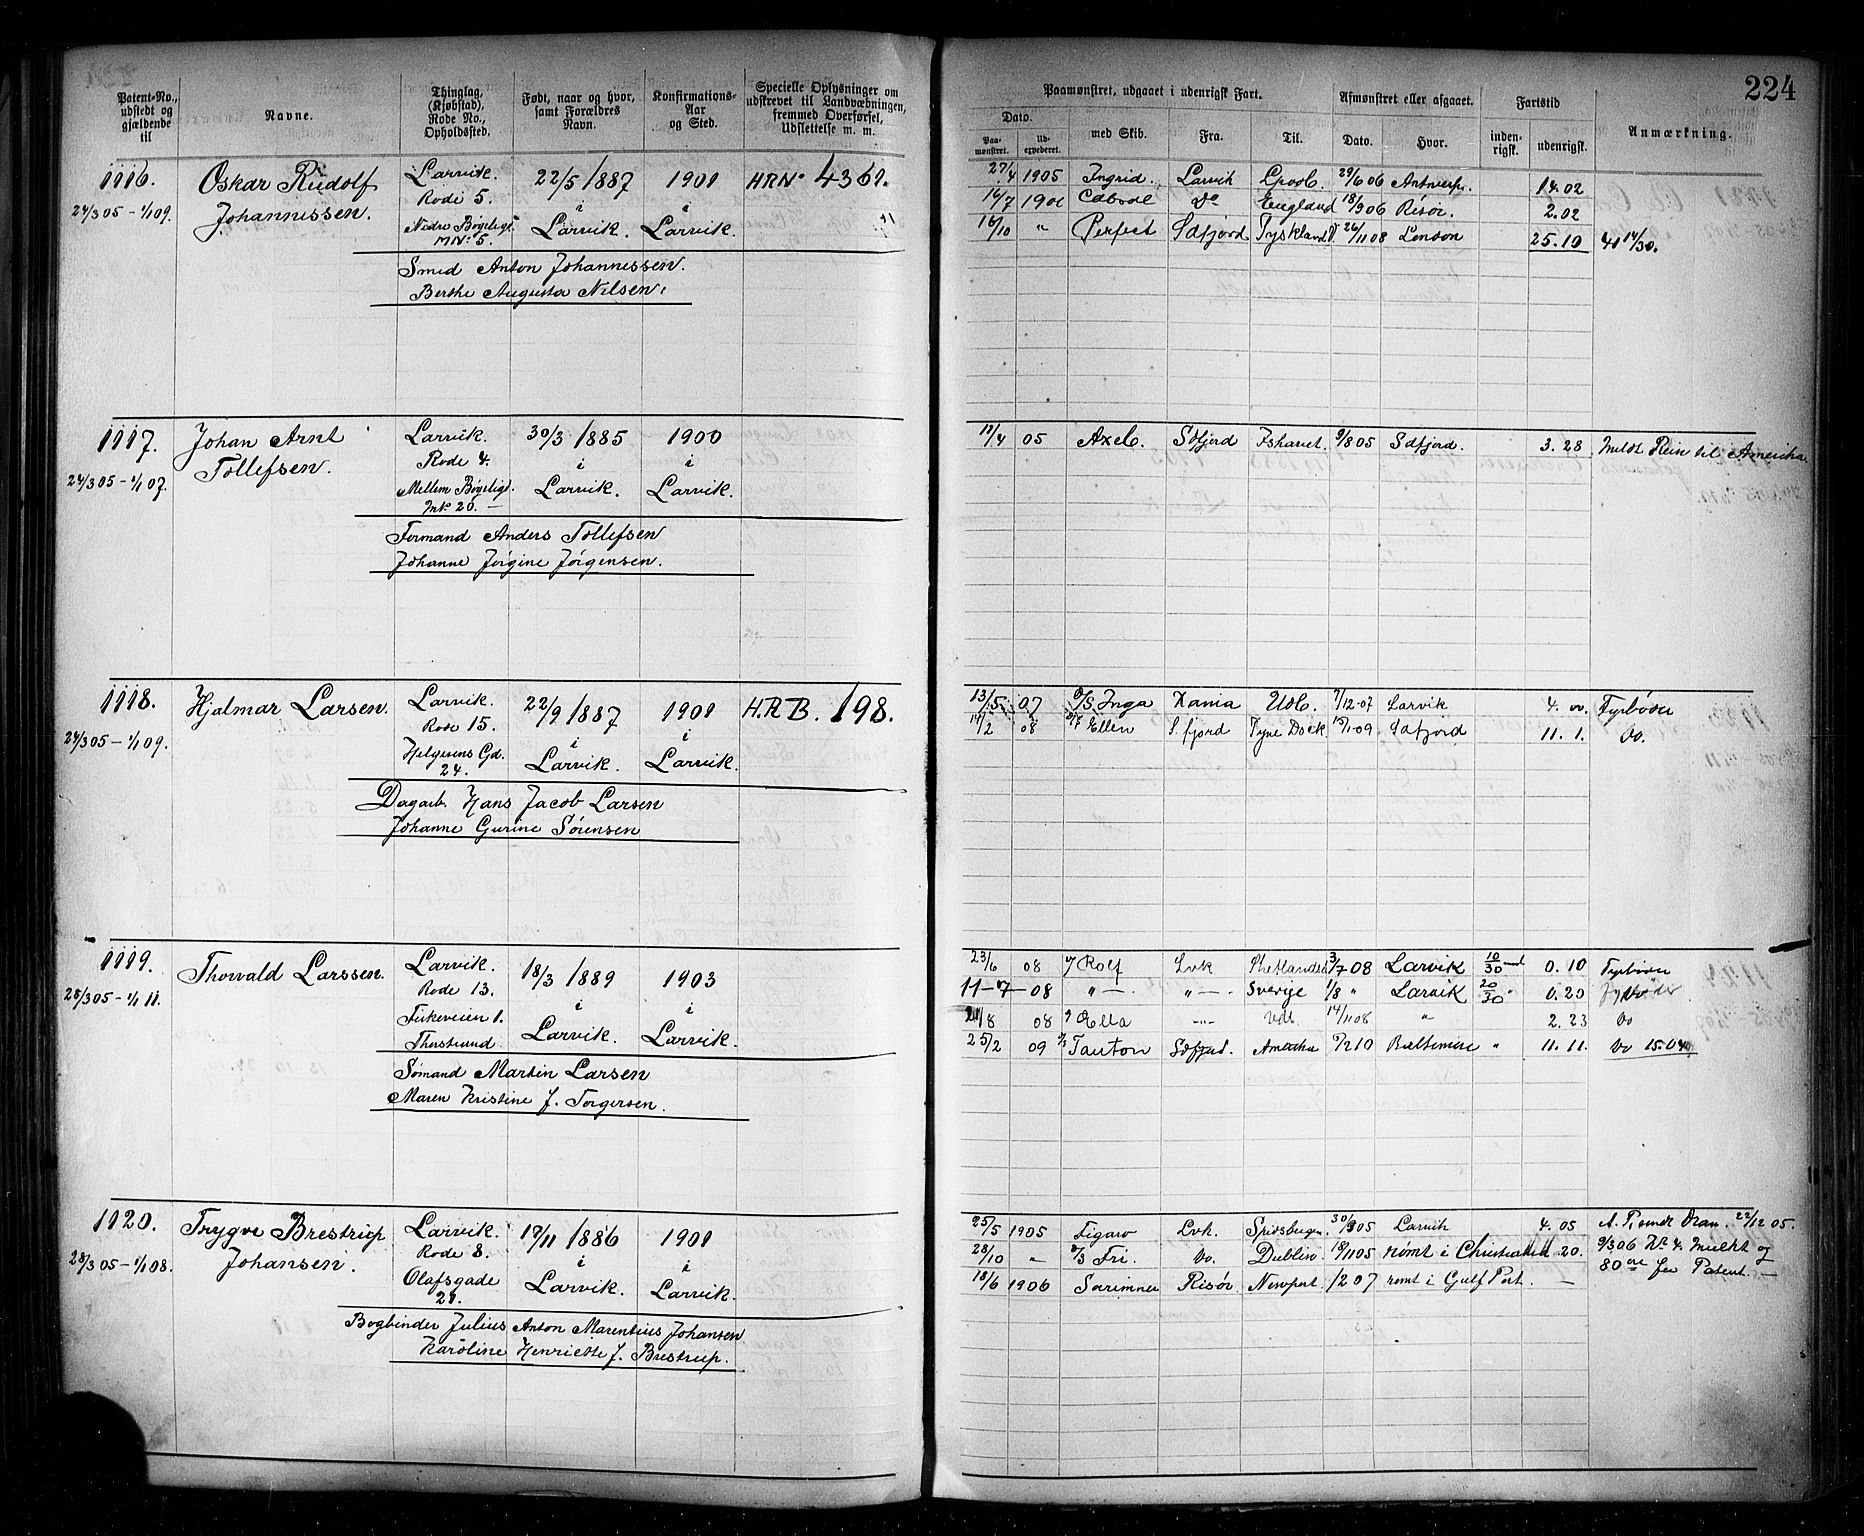 224
Patent-No., udstedt og gjældende til
Navne.
Thinglag, (Kjøbstad), Rode No., Opholdssted.
Født, naar og hvor, samt Forældres Navn.
Konfirmations-Aar og Sted.
Specielle Oplysninger om udskrevet til Landvæbningen, fremmed Overførsel, Udslettelse m. m.
Paamønstret, udgaaet i udenrigsk Fart.
Afmønstret eller afgaaet.
Fartstid
Anmærkning.
Dato.
Paamønstret.
Udexpederet.
med Skib.
Fra.
Til.
Dato.
Hvor.
indenrigsk.
udenrigsk.
1116. Oskar Rudolf Larvik. 22/5 1887 1901 HRN° 4361.
24/3 05 - 1/1 09. Johannissen. Rode 5. i i
Nedre Bøgeligt. Larvik. Larvik.
MN° 5.
Smed Anton Johannissen.
Berthe Augusta Nilsen.
27/4 1905 Ingrid. Larvik Lpool. 29/6 06 Antwerp. 14.02
14/7 190 D° England 18/9 06 Risör. 2.02
16/10 " Perfect Sdfjord Tyskland 26/11 08 London 25.10 41 14/30.
1117. Johan Arnt Larvik. 30/3 1885 1900
24/3 05 - 1/1 07. Tollefsen. Rode 4. i i
Mellem Bøgeligt. Larvik. Larvik.
MN° 20.
Formand Anders Tollefsen
Johanne Jörgine Jörgensen.
11/4 05 Axel. Sdfjord Ishavet. 9/8 05 Sdfjord. 3.28 til Amerika
1118. Hjalmar Larsen. Larvik. 22/9 1887 1901 H.R.B. 198.
24/3 05 - 1/1 09. Rode 15. i i
Helgesens Gd. Larvik. Larvik.
24.
Dagarb. Hans Jacob Larsen
Johanne Gurine Sörensen
13/5 07 D/S Inga Xania Udl. 7/12 07 Larvik 4.00 Fyrböder
14/2 08 Ellen S.fjord Tyne Dock 15/1 09 Sdfjord 11.1. Do.
1119. Thorvald Larssen. Larvik. 18/3 1889 1903
28/3 05 - 1/1 11. Rode 13. i i
Fiskeveien 1. Larvik. Larvik.
Thorstrand.
Sømand Martin Larsen
Maren Kristine J. Torgersen.
23/6 08 Rolf Lvk Shetland 3/7 08 Larvik 10/30 0.10 Fyrböder
11-7-08 " — " — Sverige 1/8 " Larvik 20/30 " 0.20
21/8 08 Ella " — Udl. 14/11 08 " 2.23 Do
25/2 09 Tanton Sdfjord. Amerika 7/2 10 Baltimore " 11.11. Do 15.04
1120. Trygve Brestrup Larvik. 17/11 1886 1901
28/3 05 - 1/1 08. Johansen. Rode 8. i i
Olafsgade Larvik. Larvik.
21.
Bogbinder Julius Anton Marentius Johansen
Karoline Henriette J. Brestrup.
25/5 1905 Figaro Lvk. Spidsbergen 30/9 05 Larvik 4.05 22/12 05.
28/10 " Fri Do. Dublin. 18/11 05 rømt i Christiansd 20. 9/3 06 Kr 4. Mulkt og
18/6 1906 Særimner Risør. Newport 1/2 07 rømt i Gulf Port. — 80 øre for Patent. —